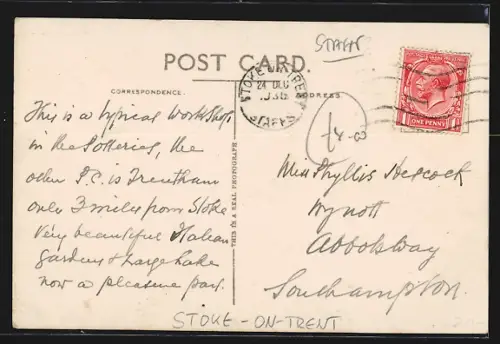 STAFFS
POST CARD.
CORRESPONDENCE.
ADDRESS
STOKE ON TRENT
24 DEC
STAFFS
ONE PENNY
£4-8
This is a typical Workshop
in the Potteries, the
other P.C. is Trentham
only 3 miles from Stoke
Very beautiful Italian
gardens & Large Lake
now a pleasure park.
THIS IS A REAL PHOTOGRAPH
Miss Phyllis
Wynott
Abbotsway
Southampton.
STOKE-ON-TRENT